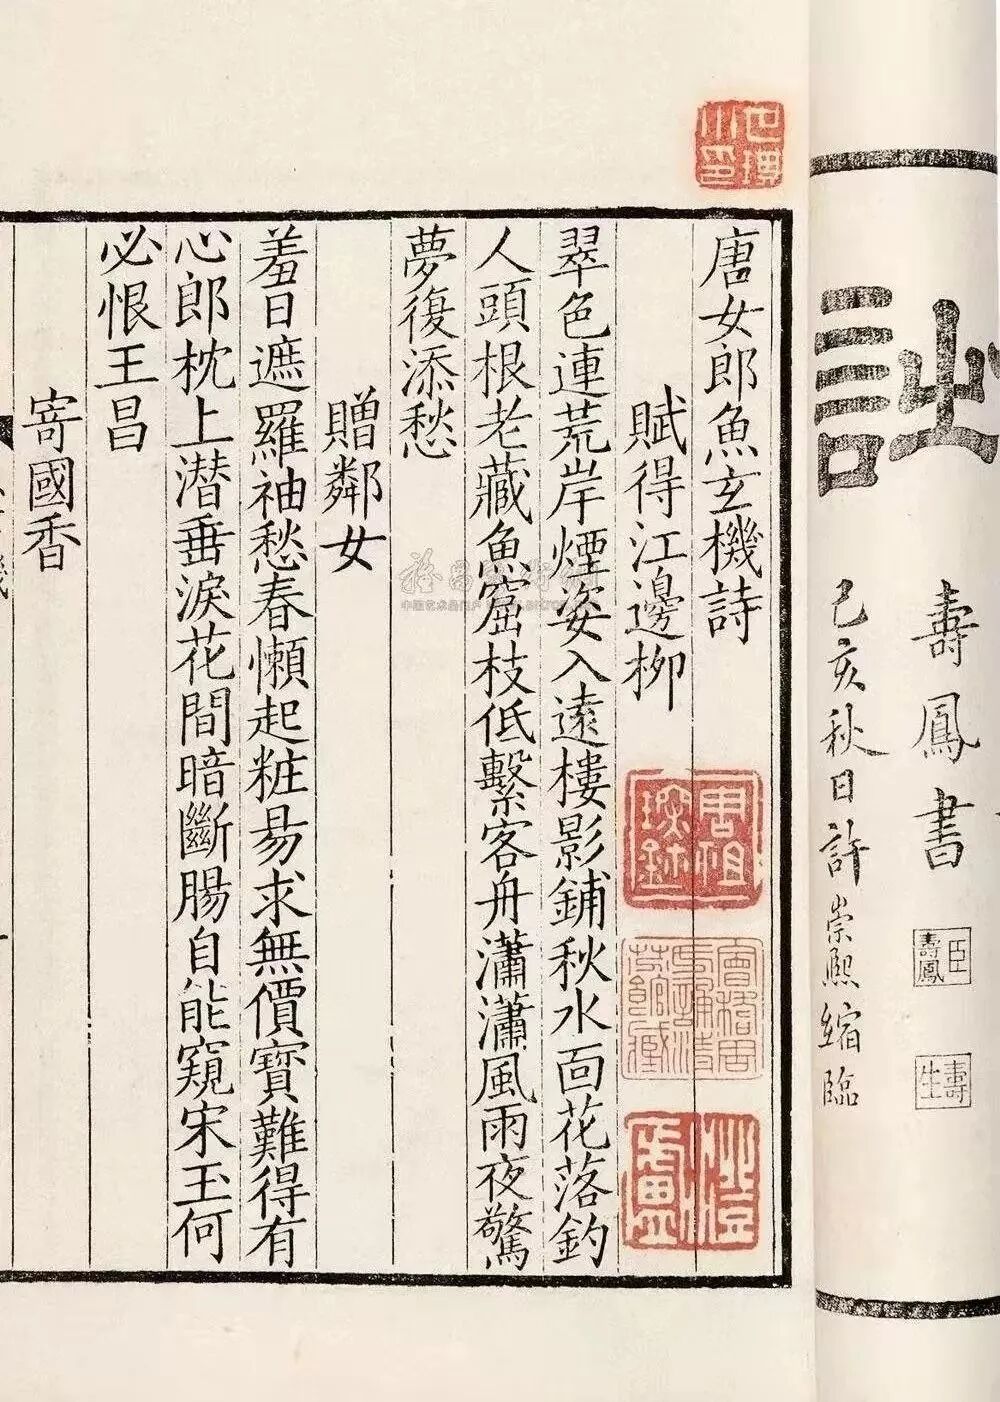 壽鳳書
臣壽鳳
壽生
己亥秋日許崇熙縮臨
唐女郎魚玄機詩
賦得江邊栁
翠色連荒岸煙姿入遠樓影鋪秋水靣花落釣
人頭根老藏魚窟枝低繫客舟瀟瀟風雨夜驚
夢復添愁
贈鄰女
羞日遮羅袖愁春懶起粧易求無價寶難得有
心郎枕上潜垂淚花間暗斷腸自能窺宋玉何
必恨王昌
寄國香